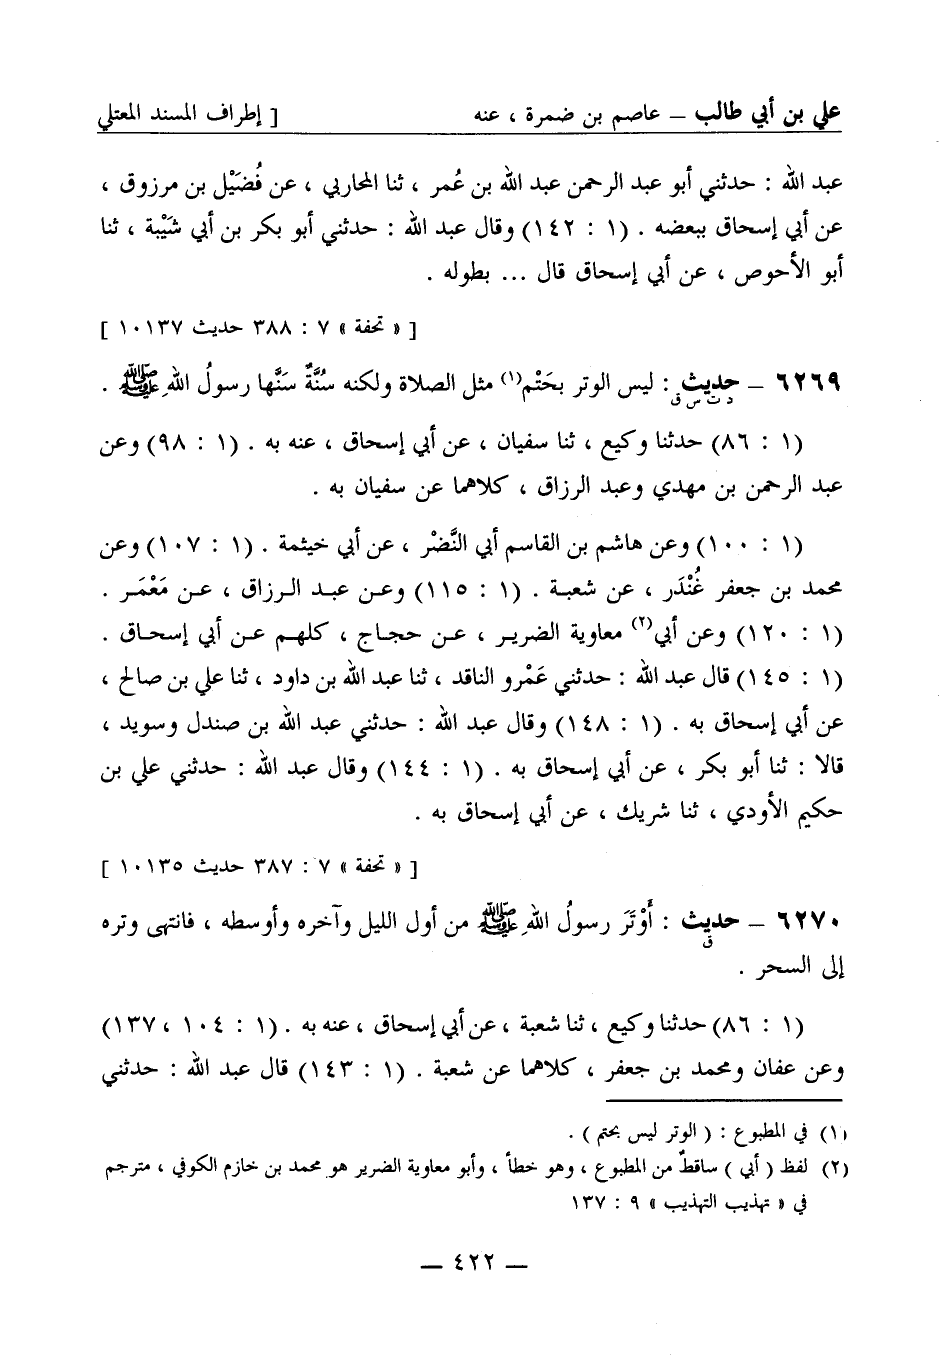 علي بن أبي طالب – عاصم بن ضمرة ، عنه [ إطراف المسند المعتلي
عبد الله : حدثني أبو عبد الرحمن عبد الله بن عُمر ، ثنا المحاربي ، عن فُضَيْل بن مرزوق ،
عن أبي إسحاق ببعضه . (١ : ١٤٢) وقال عبد الله : حدثني أبو بكر بن أبي شَيْبة ، ثنا
أبو الأحوص ، عن أبي إسحاق قال ... بطوله .
[ « تحفة » ٧ : ٣٨٨ حديث ١٠١٣٧ ]
٦٢٦٩ – حديث : ليس الوتر بحَتْم(١) مثل الصلاة ولكنه سُنَّةٌ سَنَّها رسولُ اللهِ ﷺ .
د ت س ق
(١ : ٨٦) حدثنا وكيع ، ثنا سفيان ، عن أبي إسحاق ، عنه به . (١ : ٩٨) وعن
عبد الرحمن بن مهدي وعبد الرزاق ، كلاهما عن سفيان به .
(١ : ١٠٠) وعن هاشم بن القاسم أبي النَّضْر ، عن أبي خيثمة . (١ : ١٠٧) وعن
محمد بن جعفر غُنْدَر ، عن شعبة . (١ : ١١٥) وعن عبد الرزاق ، عن مَعْمَر .
(١ : ١٢٠) وعن أبي(٢) معاوية الضرير ، عن حجاج ، كلهم عن أبي إسحاق .
(١ : ١٤٥) قال عبد الله : حدثني عَمْرو الناقد ، ثنا عبد الله بن داود ، ثنا علي بن صالح ،
عن أبي إسحاق به . (١ : ١٤٨) وقال عبد الله : حدثني عبد الله بن صندل وسويد ،
قالا : ثنا أبو بكر ، عن أبي إسحاق به . (١ : ١٤٤) وقال عبد الله : حدثني علي بن
حكيم الأودي ، ثنا شريك ، عن أبي إسحاق به .
[ « تحفة » ٧ : ٣٨٧ حديث ١٠١٣٥ ]
٦٢٧٠ – حديث : أَوْتَرَ رسولُ اللهِ ﷺ من أول الليل وآخره وأوسطه ، فانتهى وتره
ق
إلى السحر .
(١ : ٨٦) حدثنا وكيع ، ثنا شعبة ، عن أبي إسحاق ، عنه به . (١ : ١٠٤ ، ١٣٧)
وعن عفان ومحمد بن جعفر ، كلاهما عن شعبة . (١ : ١٤٣) قال عبد الله : حدثني
(١) في المطبوع : ( الوتر ليس بحتم ) .
(٢) لفظ ( أبي ) ساقطٌ من المطبوع ، وهو خطأ ، وأبو معاوية الضرير هو محمد بن خازم الكوفي ، مترجم
في « تهذيب التهذيب » ٩ : ١٣٧
– ٤٢٢ –